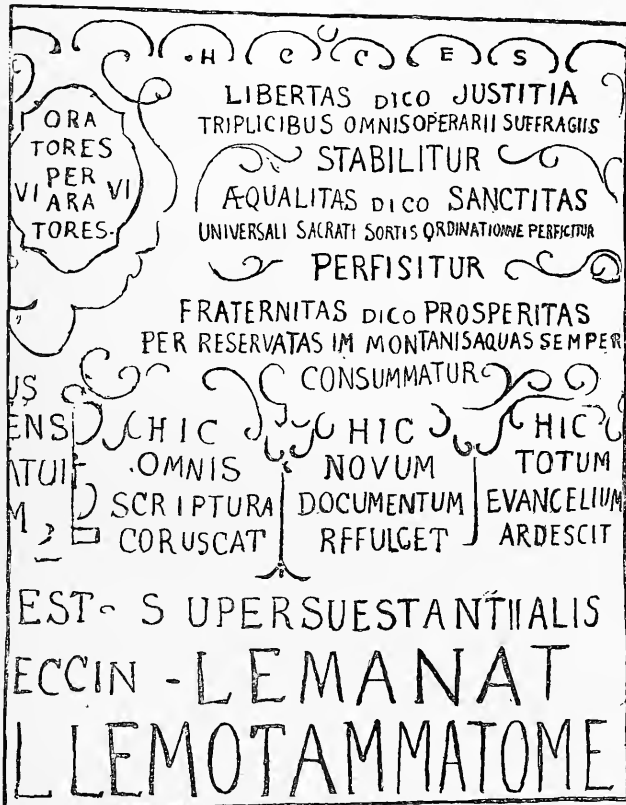 .H C C E S
LIBERTAS DICO JUSTITIA
TRIPLICIBUS OMNISOPERARII SUFFRAGIIS
STABILITUR
ÆQUALITAS DICO SANCTITAS
UNIVERSALI SACRATI SORTIS ORDINATIONNE PERFICITUR
PERFISITUR
FRATERNITAS DICO PROSPERITAS
PER RESERVATAS IM MONTANISAQUAS SEMPER
CONSUMMATUR
ORA
TORES
PER
VI ARA VI
TORES.
US
ENS
ATUI
M
HIC
.OMNIS
SCRIPTURA
CORUSCAT
HIC
NOVUM
DOCUMENTUM
RFFULGET
HIC
TOTUM
EVANCELIUM
ARDESCIT
EST- S UPERSUESTANTIIALIS
ECCIN - LEMANAT
LLEMOTAMMATOME